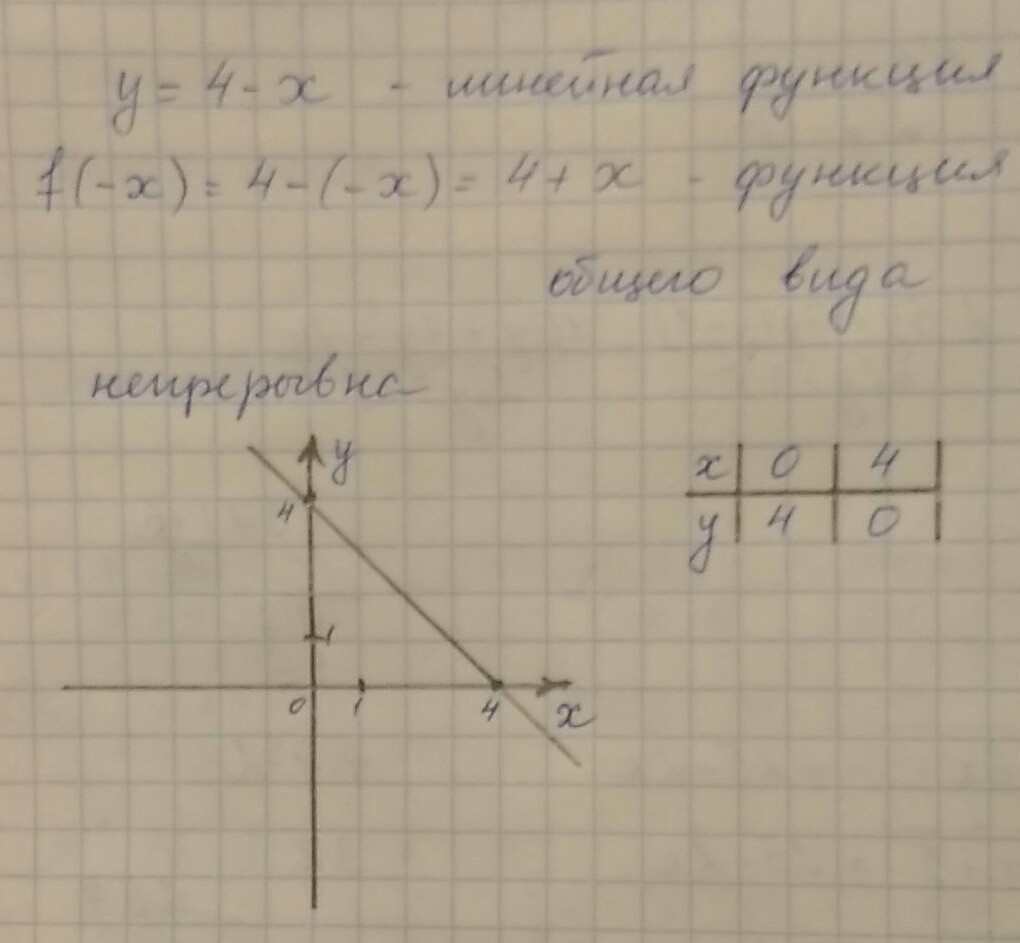 y = 4 - x - линейная функция
f(-x) = 4 - (-x) = 4 + x - функция
общего вида
непрерывна
y
x | 0 | 4 |
y | 4 | 0 |
4
1
0 1 4 x